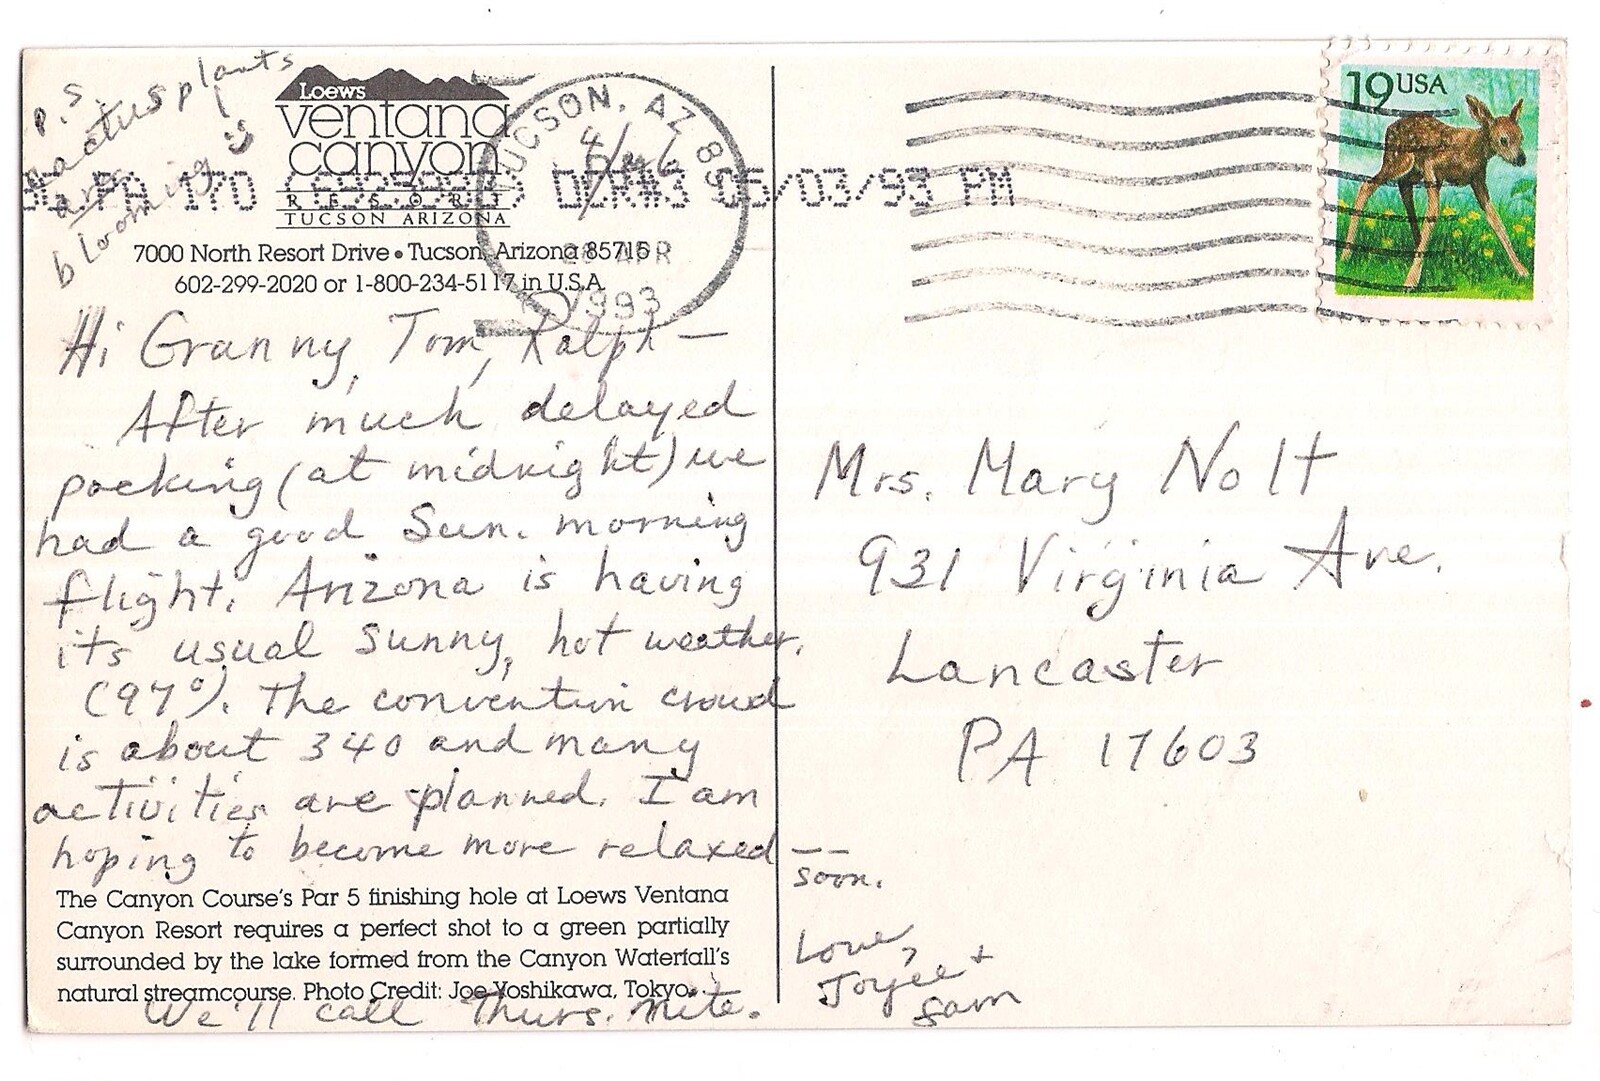 p.s.
cactus plants
are
blooming!
Loews
ventana
canyon
RESORT
TUCSON ARIZONA
7000 North Resort Drive • Tucson, Arizona 85715
602-299-2020 or 1-800-234-5117 in U.S.A.
TUCSON, AZ 85
APR
1993
PA 170
05/03/93 PM
19 USA
Hi Granny, Tom, Ralph —
After much delayed
packing (at midnight) we
had a good Sun. morning
flight. Arizona is having
its usual sunny, hot weather.
(97°). The convention crowd
is about 340 and many
activities are planned. I am
hoping to become more relaxed — —
soon.
Love,
Joyce +
Sam
The Canyon Course's Par 5 finishing hole at Loews Ventana
Canyon Resort requires a perfect shot to a green partially
surrounded by the lake formed from the Canyon Waterfall's
natural streamcourse. Photo Credit: Joe Yoshikawa, Tokyo.
We'll call Thurs. nite.
Mrs. Mary Nolt
931 Virginia Ave.
Lancaster
PA 17603